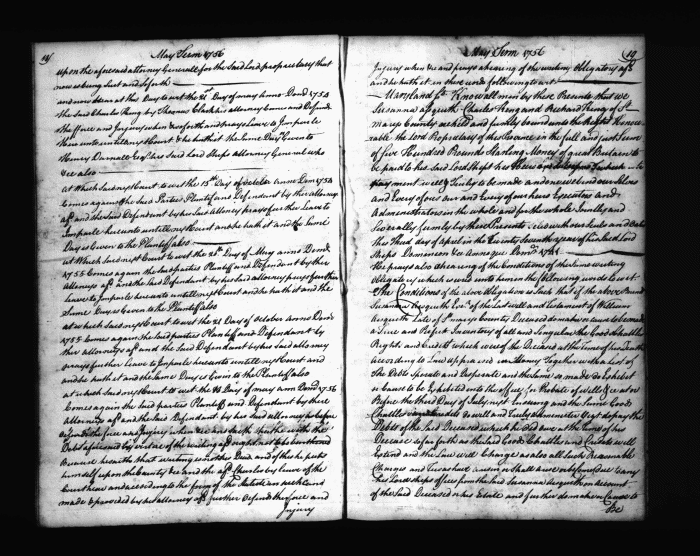 18
May Term 1756
upon the aforesaid attorney Generall for the Said Lord proprietary that
now is being Sued and soforth
and now here at this Day to wit the 21 Day of may Anno Domi 1754
the said Charles King by Thomas Clark his attorney Comes and Defends
the force and Injury when &c soforth and prays Leave to Imparle
here unto untill next Court & he hath it the same Day is Given to
Henry Darnall Esqr his Said Lord Ships attorney General who
&ca also
at which Said next Court to wit the 15th Day of October Anno Domi 1754
Comes again the said Parties Plaintiff and Defendant by their attorneys
afsd and the said Defendant by his said attorney prays further Leave to
Imparle hereunto untill next Court and he hath it and the Same
Day is Given to the Plaintiff also
at which Said next Court to wit the Day of May anno Domi
1755 Comes again the Said parties Plaintiff and Defendant by their
attorneys afsd and the said Defendant by his said attorney prays further
Leave to Imparle hereunto untill next Court and he hath it and the
Same Day is Given to the Plaintiff also
at which said next Court to wit the 21 Day of October Anno Domi
1755 Comes again the said parties Plaintiff and Defendant by
their attorneys afsd and the said Defendant by his said attorney
prays further Leave to Imparle hereunto untill next Court and
and he hath it and the same Day is Given to the Plaintiff also
at which Said next Court to wit the Day of may anno Domi 1756
Comes again the said parties Plaintiff and Defendant by there
attorneys afsd and the said Defendant by his said attorney as before
Defends the force and Injury when &c and saith that he the
Debt aforesaid by virtue of the writing afsd ought not to be
Because he saith that writing is not his Deed and of this he puts
himself upon the County &c and the afsd Charles by leave of the
Court here and according to the form of the Statute in such Case
made & provided by his attorney afsd further Defends the force and
Injury
May Term 1756
19
Injury when &c and prays a hearing of the writing obligatory afsd
and he hath it in these words following to wit
Maryland Ss Know all men by these Presents that we
Susanna Asquith Charles King and Richard King of St
marys County are held and firmly bound unto the Right Honoura
rable the Lord Proprietary of this Province in the full and just Summ
of five Hundred Pounds Starling Money of great Brittain to
be paid to his said Lord Ship his Heirs to which
payment well & Truly to be made and we Bind our Selves
and Every of our and Every of our heirs Executors and
Administrators in the whole and for the whole Joyntly and
Severally firmly by these Presents Sealed with our Seals and Dated
this Third Day of aprel in the Twenty Seventh year of his Said Lord
Ships Dominion &c Annoque Domi
He prays also a hearing of the Conditions of the same writing
obligatory which is read unto him in the following words to wit
The Conditions of the above obligation is Such that if the above Bound
Susanna Asquith Exr of the Last will and Testament of William
Asquith Late of St marys County Deceased do make or cause to be made
a True and Perfect Inventory of all and Singular the Goods Chattles
Rights and Credits which were of the Deceased at the Time of his Death
According to Law appraised in Money Together with a List of
the Debts Sperate and Desperate and the Same so made do Exhibit
or cause to be Exhibited into the office for Probate of wills &c at or
Before the third Day of July next Ensuing and the same Goods
Chattles and Credits do well and Truly administer Yt is to pay the
Debts of the Said Deceased which he Did owe at the Time of his
Decease so far forth as the Said Goods Chattles and Credits will
Extend and the Law will Charge as also all such Reasonable
Charges and Fees as have arisen or Shall arise or become Due to any
his Lordships offices from the said Susanna Asquith on account
of the Said Deceased or his Estate and further do make or Cause to
be